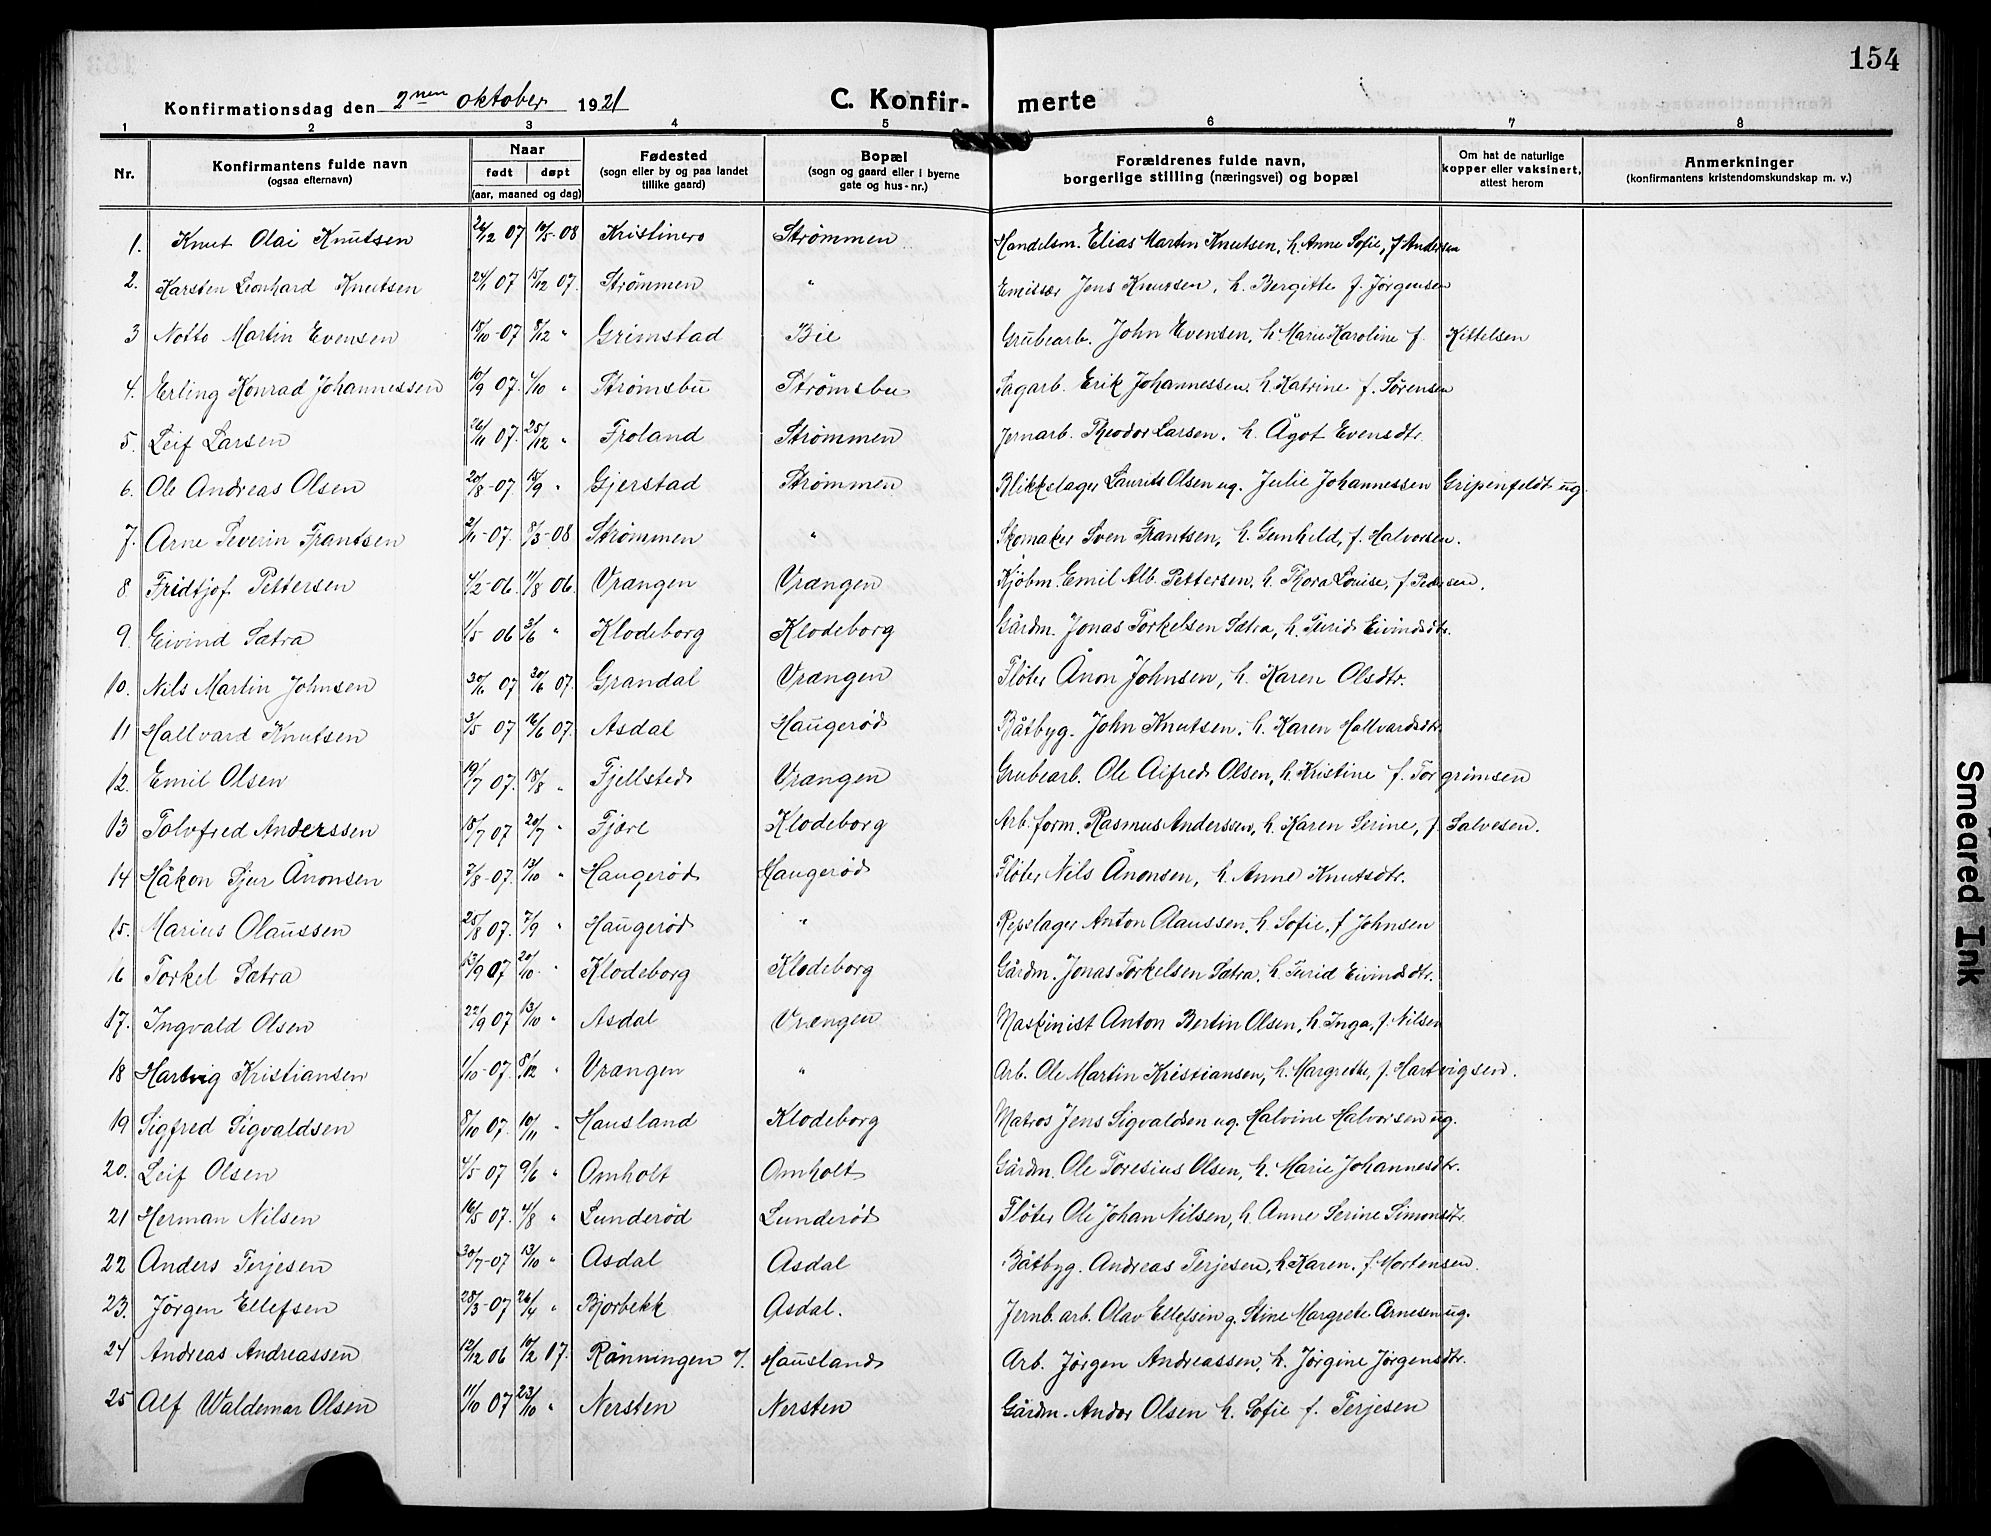 154
Konfirmationsdag den 2nen oktober 1921 C. Konfir- merte
1 2 3 4 5 6 7 8
Nr. Konfirmantens fulde navn (ogsaa efternavn) Naar født døpt (aar, maaned og dag) Fødested (sogn eller by og paa landet tillike gaard) Bopæl (sogn og gaard eller i byerne gate og hus-nr.) Forældrenes fulde navn, borgerlige stilling (næringsvei) og bopæl Om hat de naturlige kopper eller vaksinert, attest herom Anmerkninger (konfirmantens kristendomskundskap m. v.)
1. Knut Olai Knutsen 07 08 Kristinero Strømmen Handelsm. Elias Martin Knutsen, h. Anne Sofie, f Andersen
2. Karsten Leonhard Knutsen 24/1 07 15/12 07. Strømmen " Emissær Jens Knutsen, h. Bergitte f. Jørgensen
3 Notto Martin Evensen 15/10-07 8/12 " Grimstad Bie Grubearb. John Evensen, h. Marie Karoline f. Kittelsen
4. Erling Konrad Johannessen 10/9 07. /10 " Strømsbu Strømsbu Sagarb. Erik Johannessen, h. Katrine f. Sørensen
5. Leif Larsen 26/11 07. 25/12 " Froland Strømmen Jernarb. Theodor Larsen, h. Ågot Evensdtr.
6. Ole Andreas Olsen 20/8-07 15/9 " Gjerstad Strømmen Blikkslager Laurits Olsen ug. Julie Johannessen Gripenfeldt ug.
7. Arne Severin Frantsen 2/11-07. 8/3-08 Strømmen " Skomaker Sven Frantsen, h. Gunhild, f. Halvorsen.
8 Fridtjof Pettersen 4/2-06. 11/8 06. Vrangen Vrængen Kjøbm. Emil Alb. Pettersen, h. Thora Louise, f. Pedersen.
9. Eivind Sætra 1/5 06 3/6 " Klodeborg Klodeborg Gårdm. Jonas Torkelsen Sætra, h. Turid Eivindsdtr.
10. Nils Martin Johnsen 07 30/6 07. Grandal Vrængen Fløter Ånon Johnsen, h. Karen Olsdtr.
11 Hallvard Knutsen 3/5 07 16/6 07. Asdal Haugerød Båtbyg. John Knutsen, h. Karen Hallvardsdtr.
12. Emil Olsen 19/7 07. 18/8 " Fjellsted Vrængen Grubearb. Ole Alfred Olsen, h. Kristine f. Torgrimsen
13 Tolvfred Anderssen 18/7 07 20/7 " Fjære Klodeborg Arb. form. Rasmus Anderssen, h. Karen Serine, f. Salvesen.
14 Håkon Sjur Ånonsen 7/8-07. 13/10 " Haugerød Haugerød Fløter Nils Ånonsen, h. Anne Knutsdtr.
15. Marius Olaussen 25/8 07. 7/9 " Haugerød " Repslager Anton Olaussen, h. Sofie, f Johnsen
16 Torkel Sætra 13/9 07 20/10 " Klodeborg Klodeborg Gårdm. Jonas Torkelsen Sætra, h. Turid Eivindsdtr.
17. Ingvald Olsen 22/9 07 13/10 " Asdal Vrængen Maskinist Anton Bertin Olsen, h. Inga, f. Nilsen
18 Hartvig Kristiansen 1/10-07. 8/12 " Vrængen " Arb. Ole Martin Kristiansen, h. Margrethe, f. Hartvigsen.
19 Sigfred Sigvaldsen 8/10 07. 10/11 " Hausland Klodeborg Matros Jens Sigvaldsen ug. Halvine Halvorsen ug.
20. Leif Olsen 4/5-07 9/6 " Omholt Omholt Gårdm. Ole Toresius Olsen, h. Marie Johannesdtr.
21 Herman Nilsen 16/5-07. 4/8 " Lunderød Lunderød Fløter Ole Johan Nilsen, h. Anne Serine Simonsdtr.
22 Anders Terjesen 30/7-07 13/10 " Asdal Asdal Båtbyg. Andreas Terjesen, h Karen, f Mortensen.
23. Jørgen Ellefsen 28/3-07 26/4 " Bjorbekk Asdal. Jernb. arb. Olav Ellefsen g. Stine Margrete Arnesen ug.
24 Andreas Andreassen 12/12 06 10/2 07. Rønningen Hausland Arb. Jørgen Andreassen, h. Jørgine Jørgensdtr.
25 Alf Waldemar Olsen 11/10 07 23/10 " Nersten Nersten Gårdm. Andor Olsen h. Sofie f. Terjesen
Smeared Ink